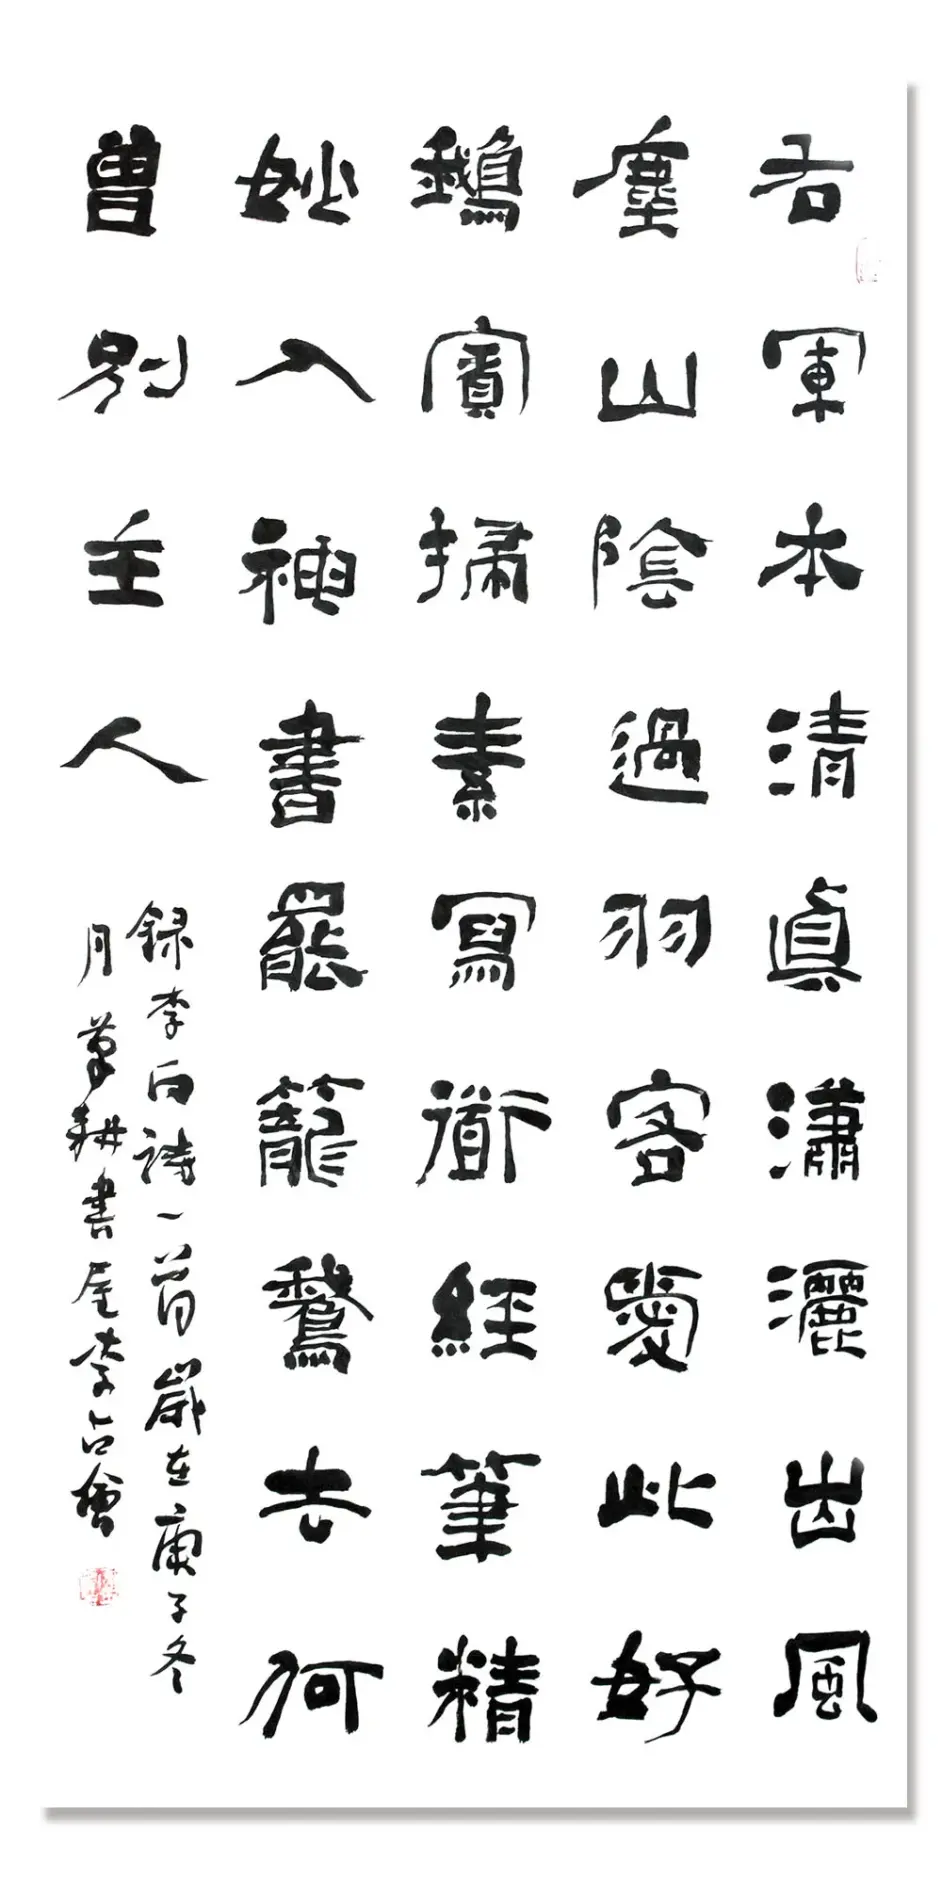 右軍本清眞瀟灑出風
塵山陰過羽客愛此好
鵝賓掃素寫衜經筆精
妙入神書罷籠鵞去何
曾別主人
録李白詩一首歲在庚子冬
月筆耕書屋李占會